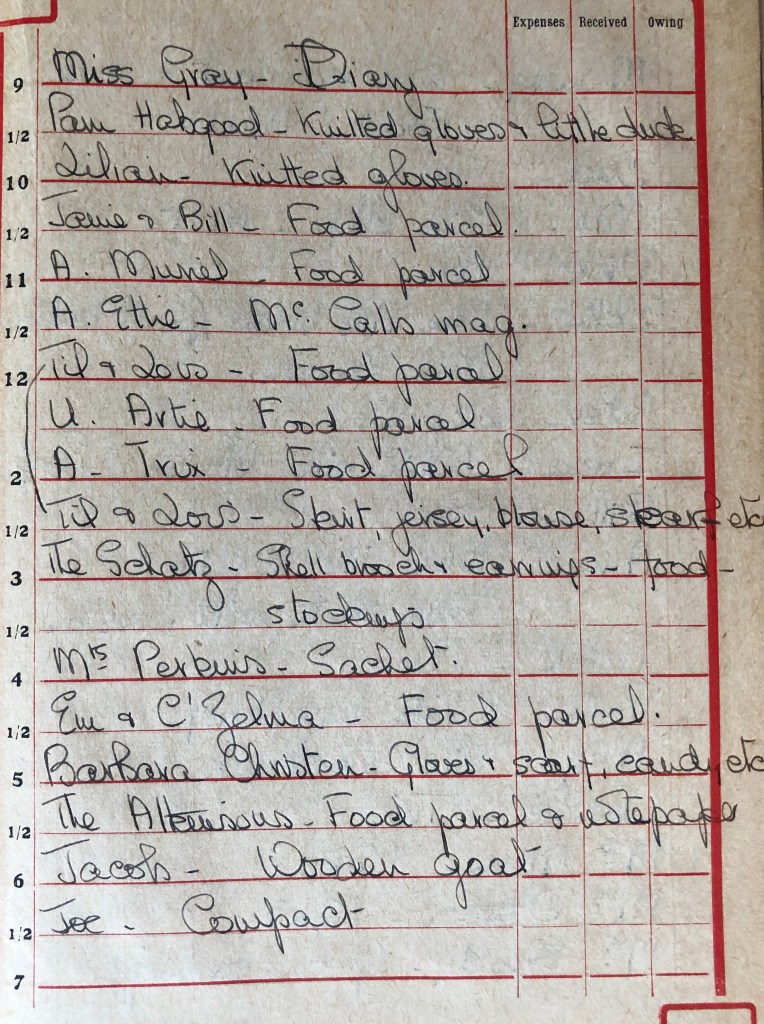 Expenses Received Owing
9 Miss Gray - Diary
1/2 Pam Habgood - Knitted gloves & little duck
10 Lilian - Knitted gloves.
1/2 Janie & Bill - Food parcel.
11 A. Muriel - Food parcel
1/2 A. Ethie - Mc. Calls mag.
12 Til & Lois - Food parcel
U. Artie - Food parcel
2 A - Trix - Food parcel
1/2 Til & Lois - Skirt, jersey, blouse, scarf etc
3 The Schatz - Shell brooch & earrings - food -
1/2 stockings
4 Mrs Perkins - Sachet.
1/2 Em & C' Zelma - Food parcel.
5 Barbara Christen - Gloves & scarf, candy, etc
1/2 The Atkinsons - Food parcel & notepaper
6 Jacob - Wooden goat
1/2 Joe - Compact
7